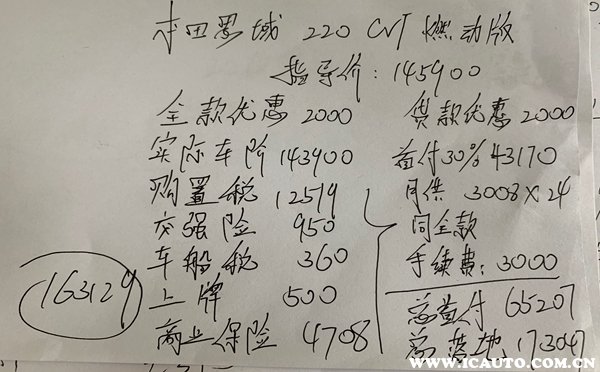 本田思域 220 CVT 燃动版
指导价：145900
全款优惠 2000
实际车价 143900
购置税 12579
交强险 950
车船税 360
上牌 500
商业保险 4708
163129
贷款优惠 2000
首付30% 43170
月供 3008×24
同全款
手续费：3000
总首付 65207
总落地：173047
WWW.ICAUTO.COM.CN